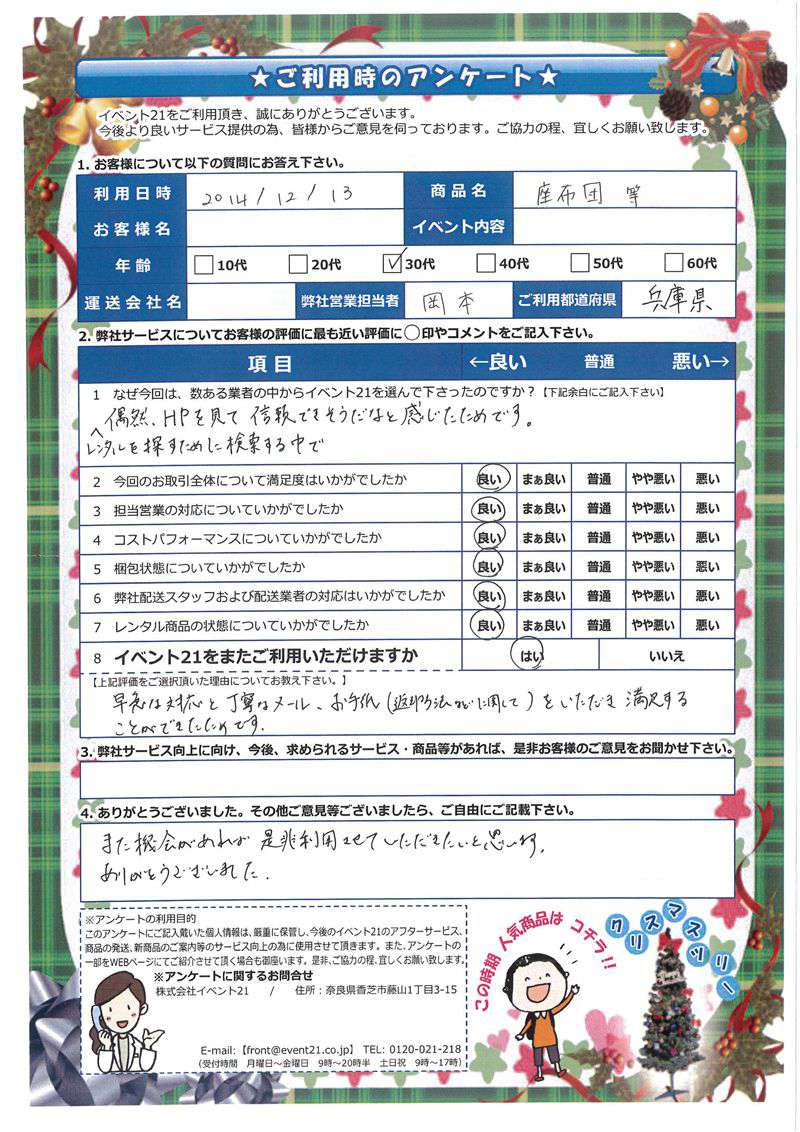 ★ご利用時のアンケート★
イベント21をご利用頂き、誠にありがとうございます。
今後より良いサービス提供の為、皆様からご意見を伺っております。ご協力の程、宜しくお願い致します。
1. お客様について以下の質問にお答え下さい。
利用日時 2014/12/13 商品名 座布団 等
お客様名 イベント内容
年齢 10代 20代 ✓30代 40代 50代 60代
運送会社名 弊社営業担当者 岡本 ご利用都道府県 兵庫県
2. 弊社サービスについてお客様の評価に最も近い評価に○印やコメントをご記入下さい。
項目 ←良い 普通 悪い→
1 なぜ今回は、数ある業者の中からイベント21を選んで下さったのですか？【下記余白にご記入下さい】
偶然、HPを見て信頼できそうだなと感じたためです。
レンタルを探すために検索する中で
2 今回のお取引全体について満足度はいかがでしたか 良い まぁ良い 普通 やや悪い 悪い
3 担当営業の対応についていかがでしたか 良い まぁ良い 普通 やや悪い 悪い
4 コストパフォーマンスについていかがでしたか 良い まぁ良い 普通 やや悪い 悪い
5 梱包状態についていかがでしたか 良い まぁ良い 普通 やや悪い 悪い
6 弊社配送スタッフおよび配送業者の対応はいかがでしたか 良い まぁ良い 普通 やや悪い 悪い
7 レンタル商品の状態についていかがでしたか 良い まぁ良い 普通 やや悪い 悪い
8 イベント21をまたご利用いただけますか はい いいえ
【上記評価をご選択頂いた理由についてお教え下さい。】
早急な対応と丁寧なメール、お手紙(返却方法などに関して)をいただき満足する
ことができたためです。
3. 弊社サービス向上に向け、今後、求められるサービス・商品等があれば、是非お客様のご意見をお聞かせ下さい。
4. ありがとうございました。その他ご意見等ございましたら、ご自由にご記載下さい。
また機会があれば是非利用させていただきたいと思います。
ありがとうございました。
※アンケートの利用目的
このアンケートにご記入戴いた個人情報は、厳重に保管し、今後のイベント21のアフターサービス、
商品の発送、新商品のご案内等のサービス向上の為に使用させて頂きます。また、アンケートの
一部をWEBページにてご紹介させて頂く場合も御座います。是非、ご協力の程、宜しくお願い致します。
※アンケートに関するお問合せ
株式会社イベント21 / 住所：奈良県香芝市藤山1丁目3-15
E-mail:【front@event21.co.jp】 TEL: 0120-021-218
（受付時間 月曜日～金曜日 9時～20時半 土日祝 9時～17時）
この時期 人気商品は コチラ!!
クリスマスツリー